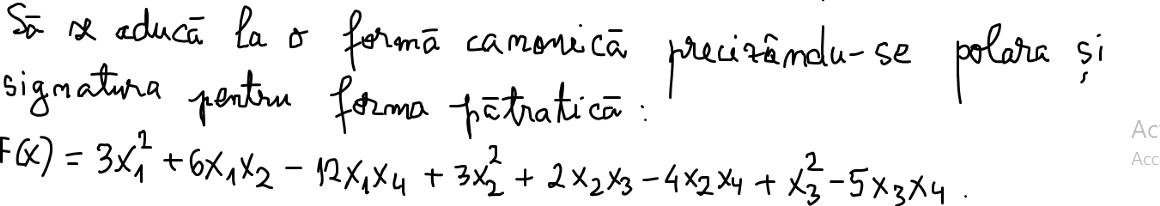 Să se aducă la o formă canonică precizându-se polara și
signatura pentru forma pătratică:
F(x) = 3x₁² + 6x₁x₂ - 12x₁x₄ + 3x₂² + 2x₂x₃ - 4x₂x₄ + x₃² - 5x₃x₄.
Act
Acce